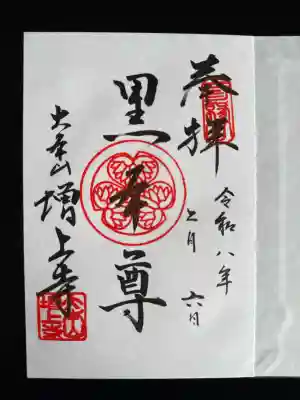 奉拝
令和八年
正月 六日
黒本尊
大本山 増上寺
大本山
増上寺